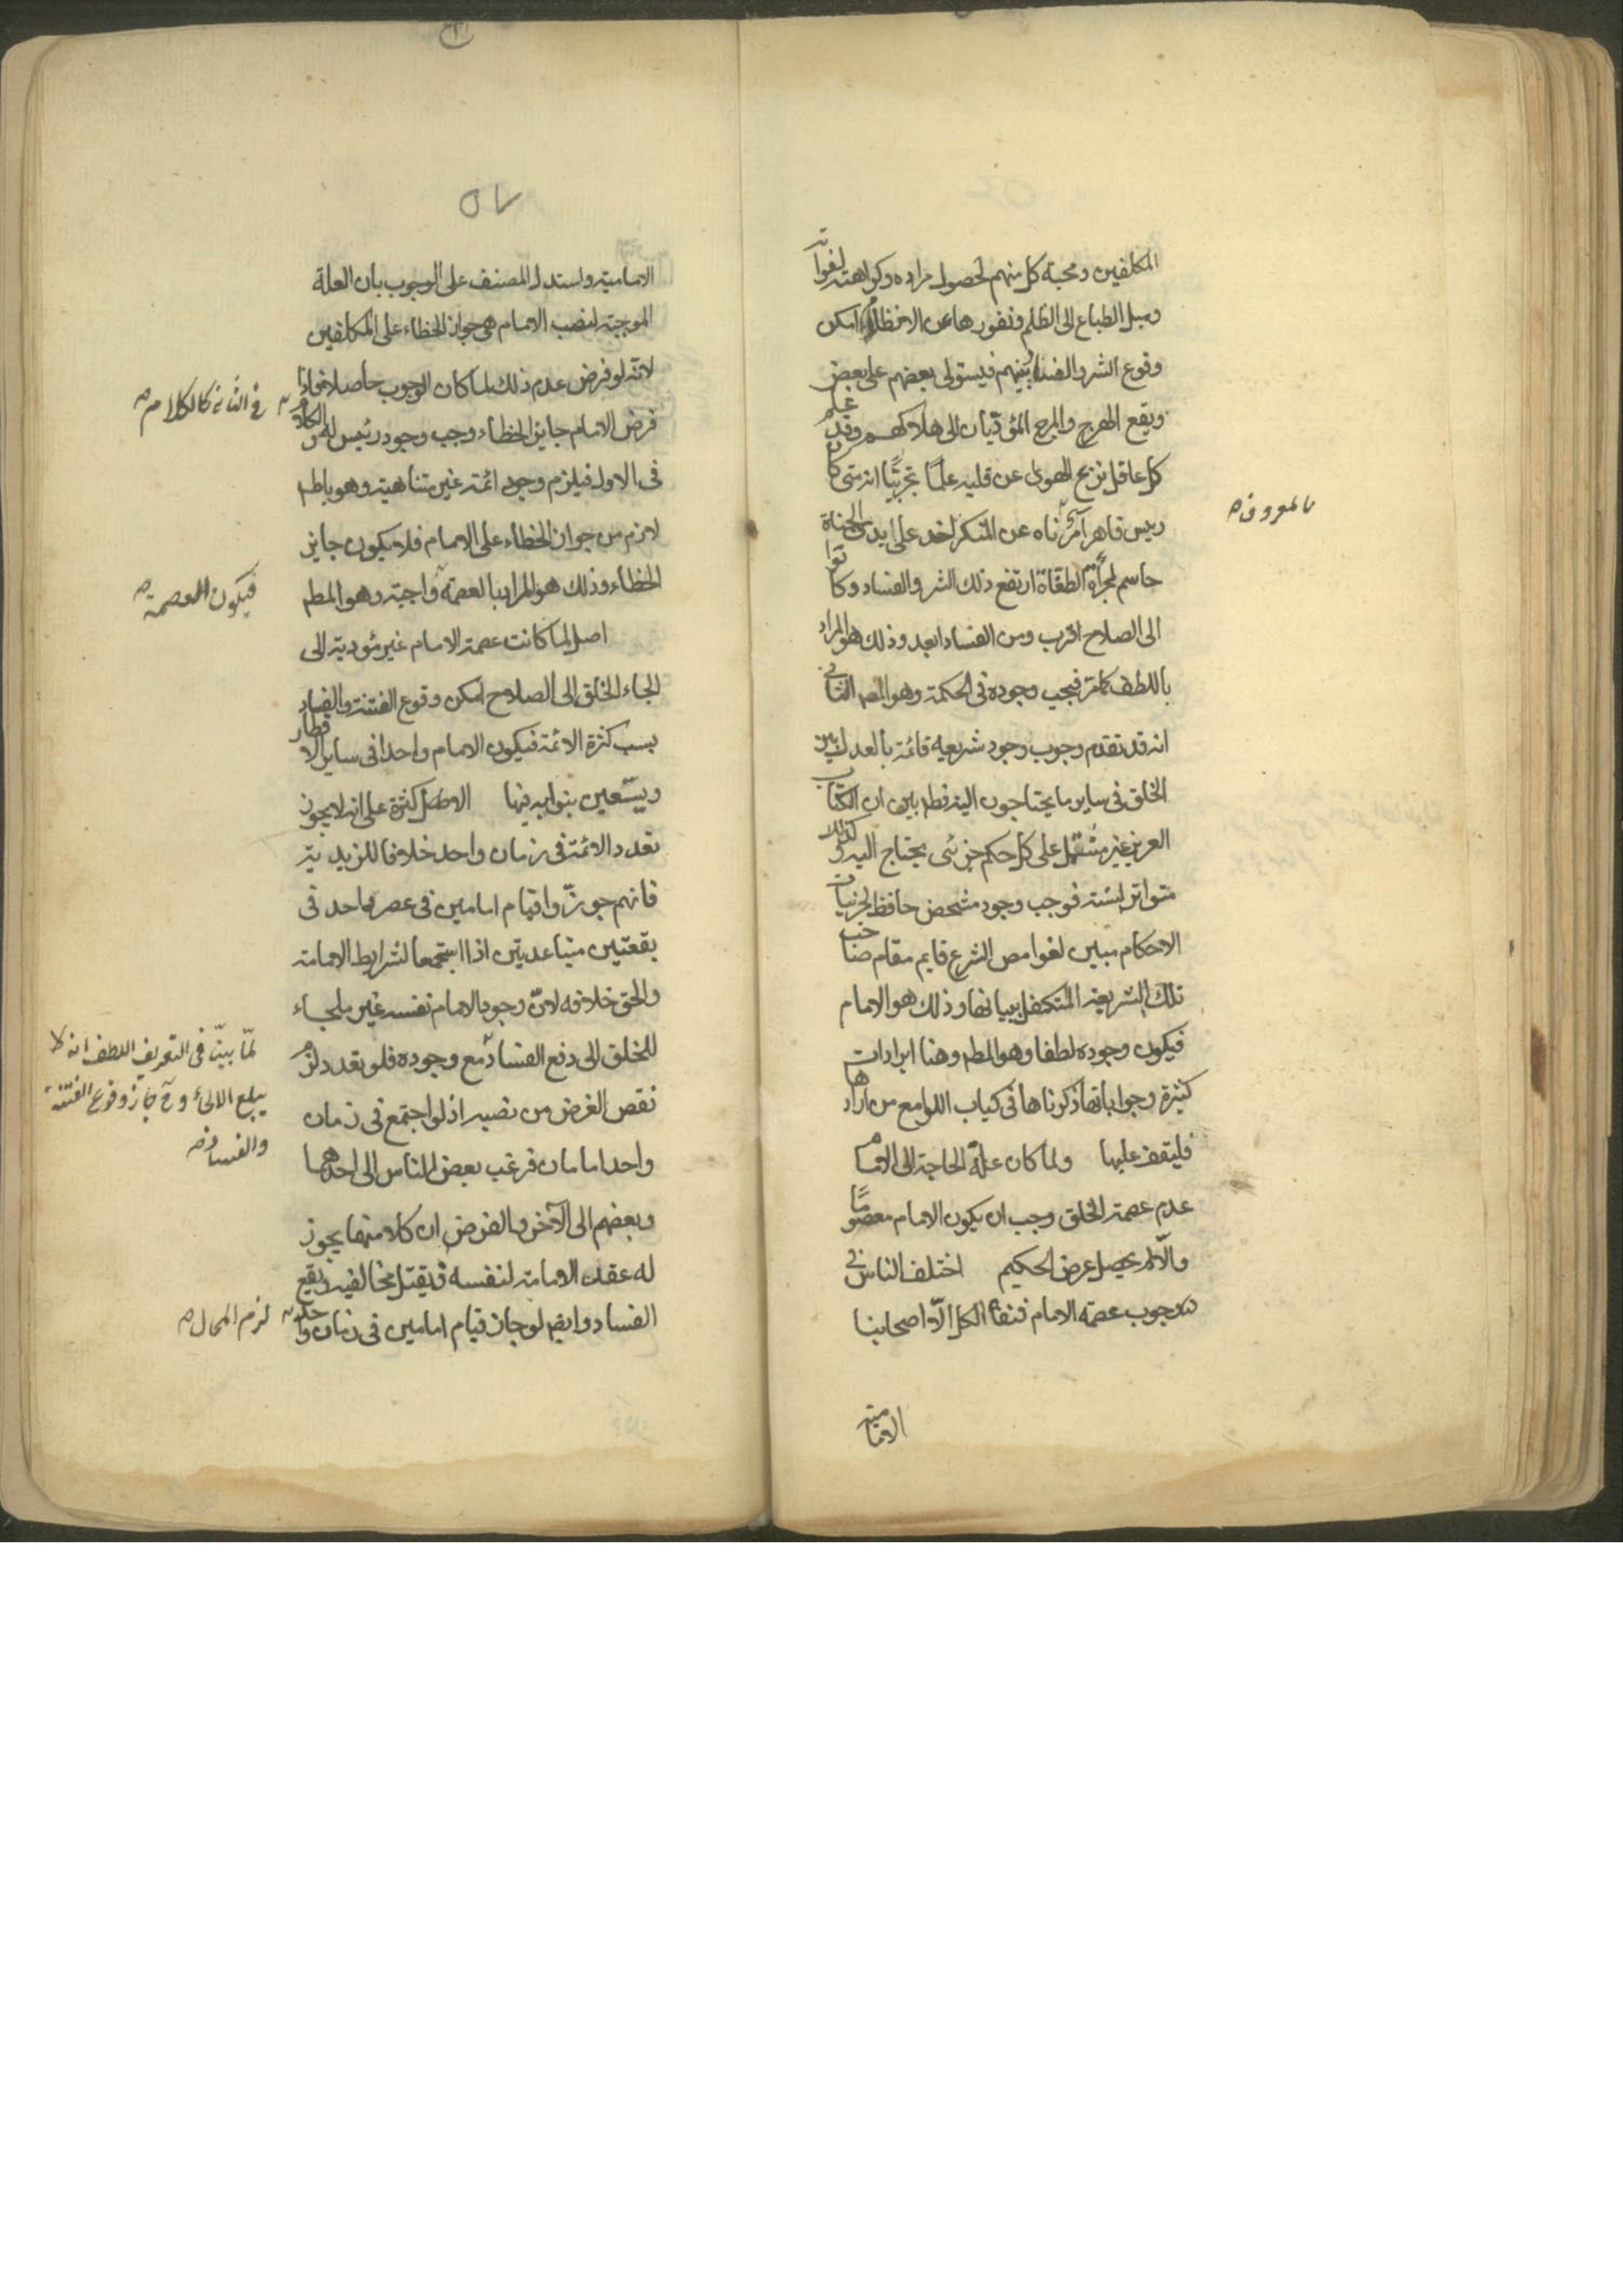 المكلفين ومحبة كل منهم لحصول مراده وكراهته لفواته
وميل الطباع الى الظلم ونفورها عن الانظلام امكن
وقوع الشر والفساد بينهم فيستولى بعضهم على بعض
ويقع الهرج والمرج المؤديان الى هلاكهم وقد علم
كل عاقل نزع الهوى عن قلبه علما تجربيا انه متى كان
رييس قاهر آمر ناه عن المنكر اخذ على ايدى الجناة
بالمعروف صح
حاسم لجرأة الطغاة ارتفع ذلك الشر والفساد وكانوا
الى الصلاح اقرب ومن الفساد ابعد وذلك هو المراد
باللطف كما مر فيجب وجوده فى الحكمة وهو المط الثانى
انه قد تقدم وجوب وجود شريعة قائمة بالعدل بين
الخلق فى ساير ما يحتاجون اليه فظاهر بين ان الكتاب
العزيز غير مشتمل على كل حكم جزئى يحتاج اليه وكذلك
متواتر السنة فوجب وجود شخص حافظ لجزئيات
الاحكام مبين لغوامص الشرع قايم مقام صاحب
تلك الشريعة المتكفل ببيانها وذلك هو الامام
فيكون وجوده لطفا وهو المط وهنا ايرادات
كثيرة وجواباتها ذكرناها فى كتاب اللوامع من ارادها
فليقف عليها ولما كان علة الحاجة الى الامام
عدم عصمة الخلق وجب ان يكون الامام معصوما
والا لم يحصل غرض الحكيم اختلف الناس فى
وجوب عصمة الامام فنفاه الكل الا اصحابنا
الامامية
٥٧
الامامية واستدل المصنف على الوجوب بان العلة
الموجبة لنصب الامام هى جواز الخطاء على المكلفين
لانه لو فرض عدم ذلك لما كان الوجوب حاصلا فاذا
فرض الامام جايز الخطاء وجب وجود رئيس له والكلام
فى الثانى كالكلام صح
فى الاول فيلزم وجود ائمة غير متناهية وهو باطل
لازم من جواز الخطاء على الامام فلا يكون جايز
الخطاء وذلك هو المراد بالعصمة واجبة وهو المط
فيكون العصمة صح
اصل لما كانت عصمة الامام غير مؤدية الى
الجاء الخلق الى الصلاح امكن وقوع الفتنة والفساد
بسبب كثرة الائمة فيكون الامام واحدا فى ساير الاقطار
ويستعين بنوابه فيها الاصل كثرة على انه لا يجوز
تعدد الائمة فى زمان واحد خلافا للزيدية
فانهم جوزوا قيام امامين فى عصر واحد فى
بقعتين متباعدتين اذا استجمعا لشرايط الامامة
والحق خلافه لان وجود الامام نفسه غير ملجاء
للخلق الى دفع الفساد مع وجوده فلو تعدد لزم
لما بينا فى التعريف اللطف انه لا
يبلغ الالجاء وح جاز وقوع الفتنة
والفساد صح
نقص الغرض من نصبه اذ لو اجتمع فى زمان
واحد امامان فرغب بعض الناس الى احدهما
وبعضهم الى الآخر والفرض ان كلا منهما يجوز
له عقد الامامة لنفسه فيقتل مخالفيه ويقع
الفساد وايضا لو جاز قيام امامين فى زمان واحد
لزم المحال صح